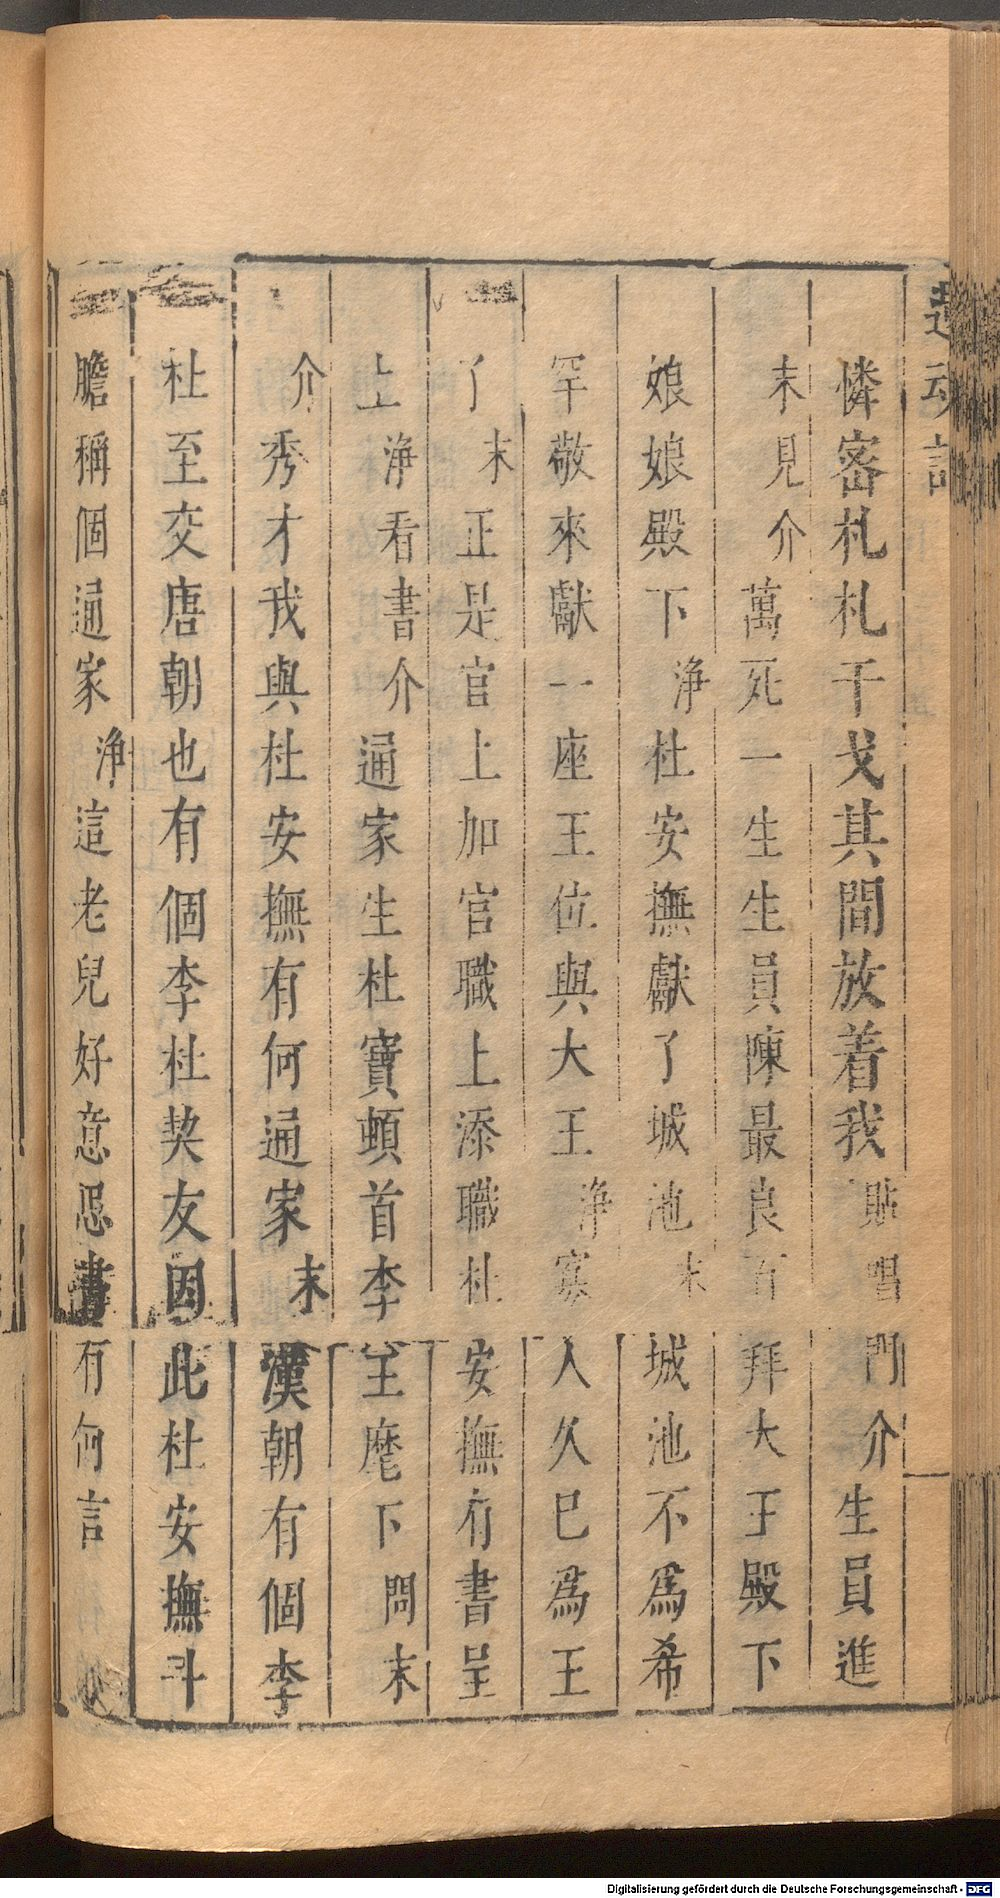 還魂記
憐密札札干戈其間放着我貼唱門介生員進
末見介萬死一生生員陳最良百拜大王殿下
娘娘殿下淨杜安撫獻了城池末城池不爲希
罕敬來獻一座王位與大王淨寡人久已爲王
了末正是官上加官職上添職杜安撫有書呈
上淨看書介通家生杜寶頓首李王麾下問末
介秀才我與杜安撫有何通家末漢朝有個李
杜至交唐朝也有個李杜契友因此杜安撫斗
膽稱個通家淨這老兒好意思書有何言
Digitalisierung gefördert durch die Deutsche Forschungsgemeinschaft - DFG